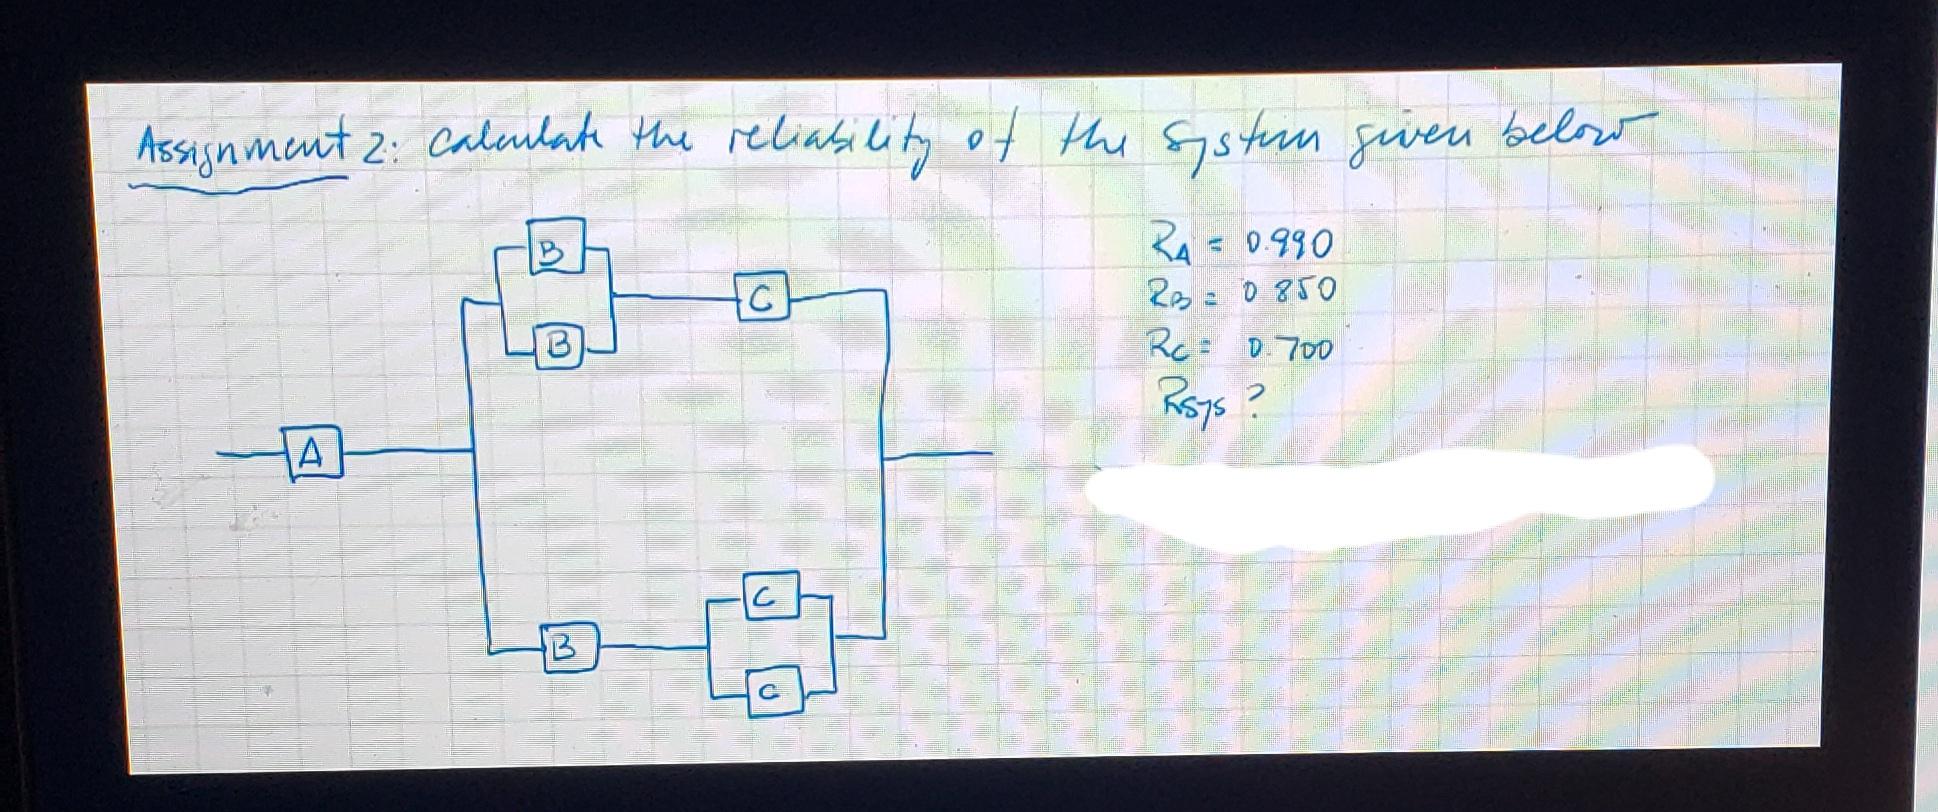 Assignment 2: Calculate the reliability of the system given below
B
B
C
A
B
C
C
RA = 0.990
RB = 0 850
RC = 0.700
Rsys ?